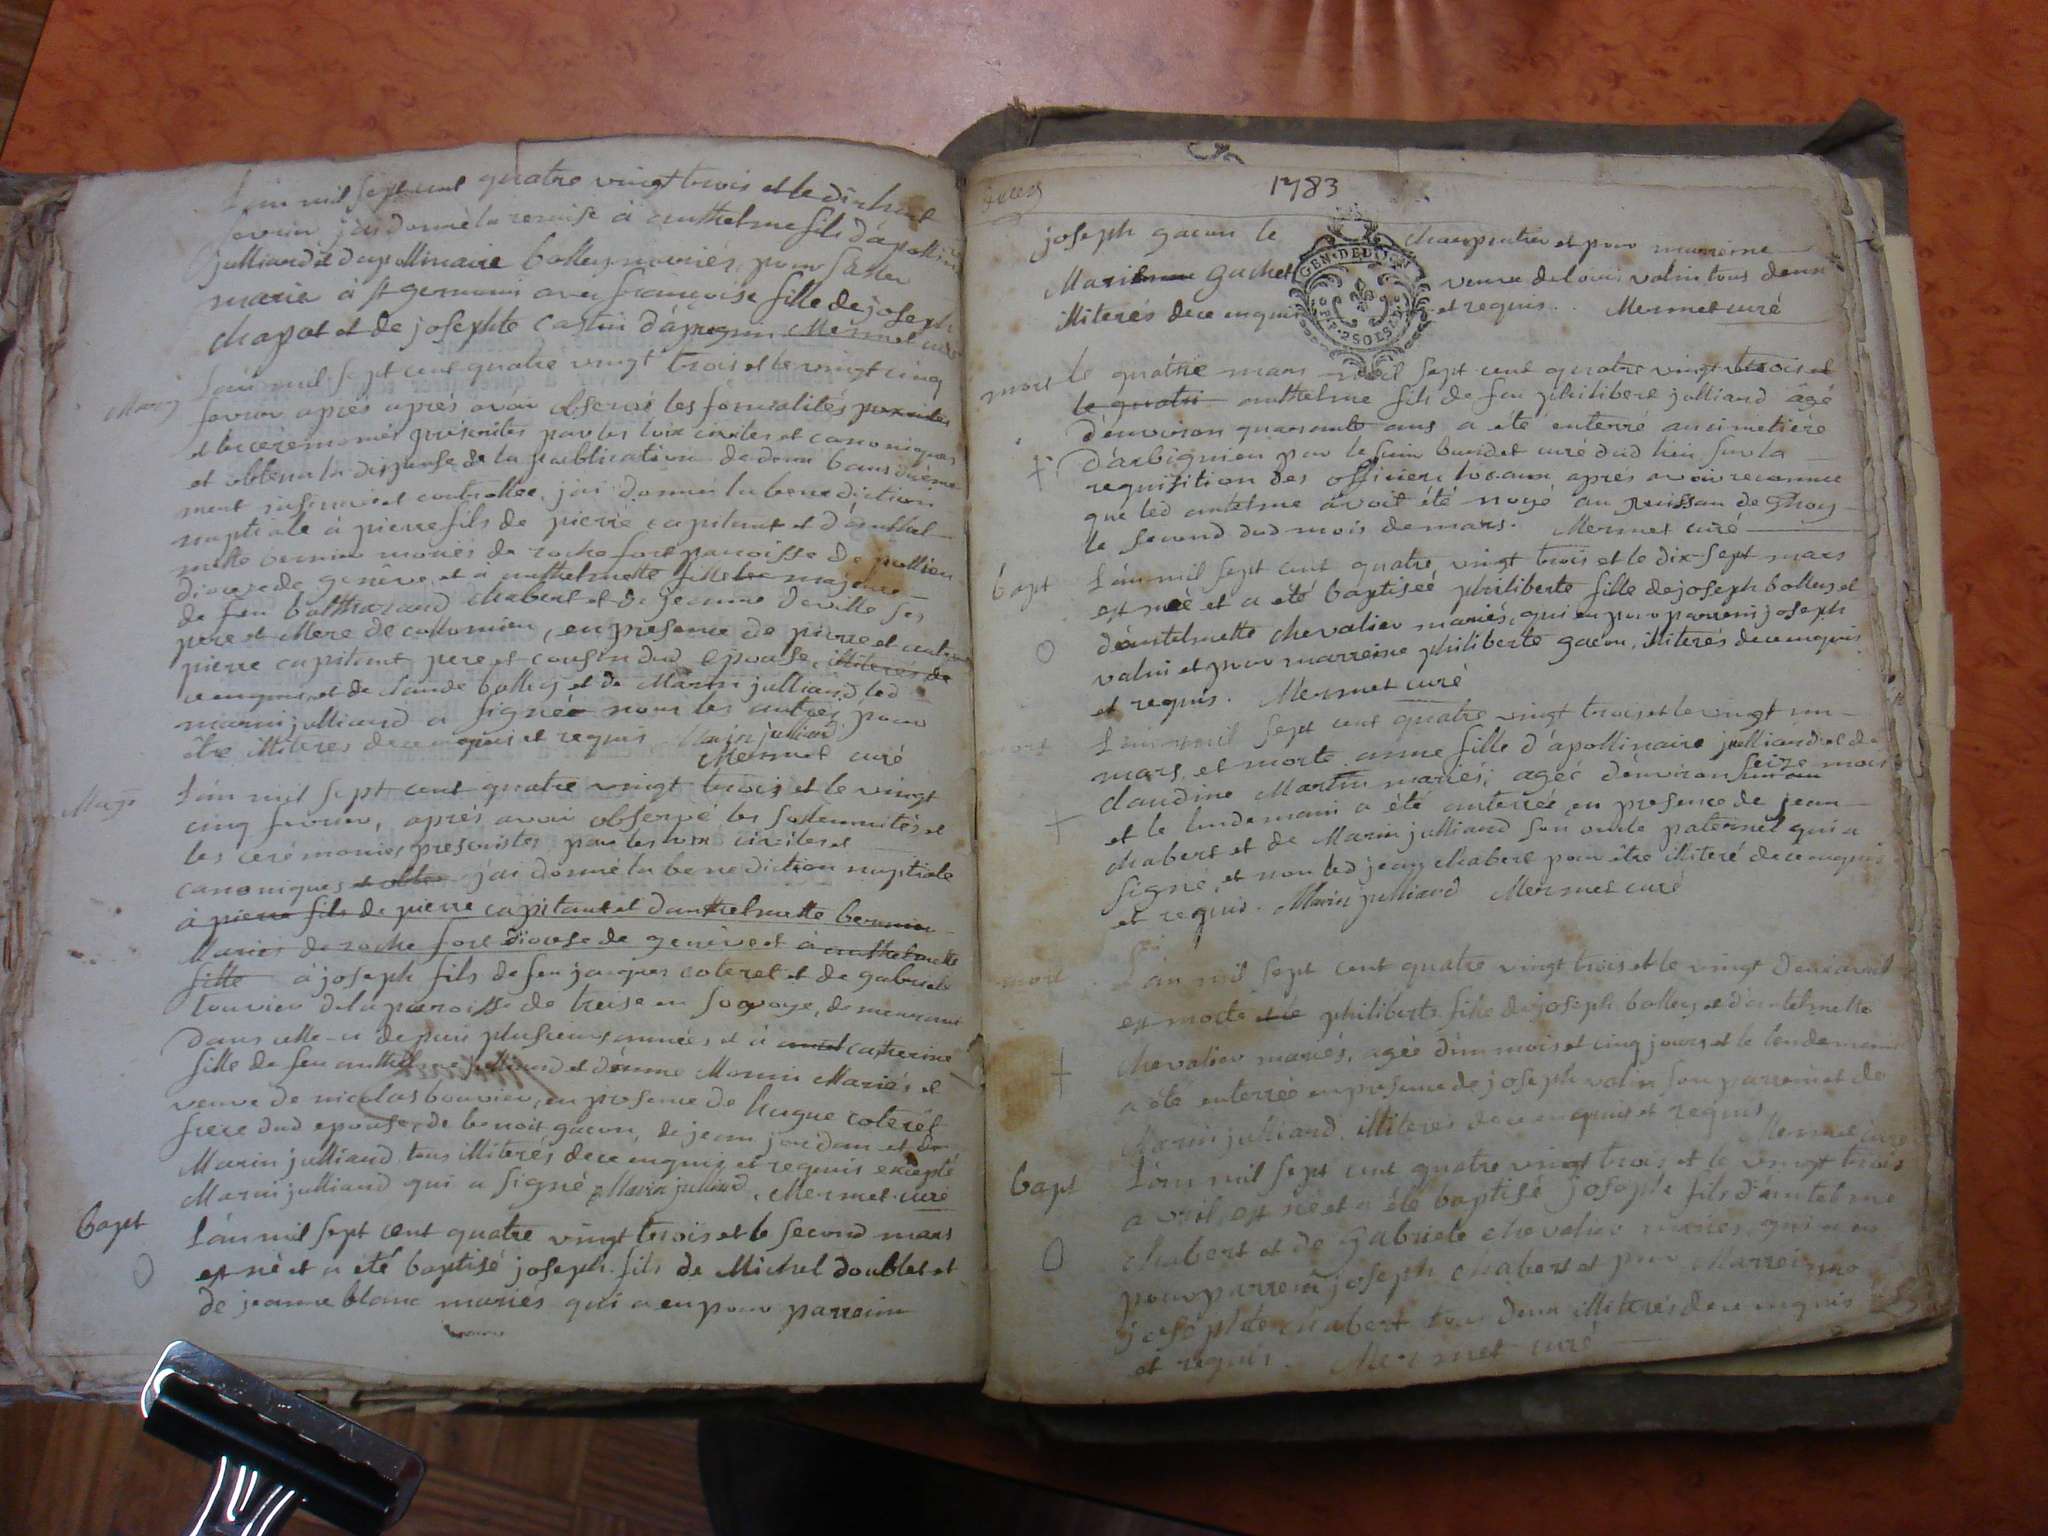 L'an mil sept cent quatre vingt trois et le dix huit
fevrier j'ai donné la remise à anthelme fils d'apollinaire
julliand et d'apollinaire bolley mariés, pour
marier à st germain avec françoise fille de joseph
chapot et de josephte Mermet curé
Mariag
L'an mil sept cent quatre vingt trois et le vingt cinq
fevrier aprés aprés avoir observé les formalités
et les ceremonies prescrites par les loix civiles et canoniques
et obtenu la dispense de la publication de deux bans
ment et controllée, j'ai donné la benediction
nuptiale à pierre fils de pierre capitant et d'anthel-
mette bernier mariés de roche fort paroisse de
diocese de genêve, et à anthelmette fille majeure
de feu balthazard chabert et de jeanne deville ses
pere et Mere de collomieu, en presence de pierre et autre
pierre capitant pere et cousin dud epouse, illiterés de
ce enquis, et de claude bolley et de Marin julliand led
marin julliand a signé non les autres pour
être illiterés de ce enquis et requis Marin julliand
Mermet curé
Mage
L'an mil sept cent quatre vingt trois et le vingt
cinq fevrier, aprés avoir observé les solemnités et
les cerémonies prescrites par les loix civiles et
canoniques j'ai donné la benediction nuptiale
à pierre fils de pierre capitant et d'anthelmette bernier
Mariés de roche fort diocese de genêve et à anthelmette
fille à joseph fils de feu jacques coteret et de gabriele
touvier de la paroisse de treise en savoye, demeurant
dans celle-ci depuis plusieurs années et à catherine
fille de feu anthelme julliand et d'anne Monin Mariés et
veuve de nicolas bouvier, en presence de hugue coteret
frere dud epouse, de benoit gacon, de jean jourdan et de
Marin julliand tous illiterés de ce enquis et requis excepté
Marin julliand qui a signé Marin julliand Mermet curé
bapt
L'an mil sept cent quatre vingt trois et le second mars
est né et a été baptisé joseph fils de Michel doublet et
de jeanne blanc mariés qui a eu pour parrein
1783
joseph gacon le charpentier et pour marreine
Marie Gachet veuve de louis valin tous deux
illiterés de ce enquis et requis. Mermet curé
GEN·DE LYON
P·P·2SOLS
mort
le quatrie mars mil sept cent quatre vingt trois et
le quatri anthelme fils de feu philibert julliand âgé
d'environ quarante ans a été enterré au cimetière
d'arbignieu par le sieur curé dud lieu sur la
requisition des officiers locaux aprés avoir reconnu
que led antelme avoit été noyé au ruissau de
le second dud mois de mars. Mermet curé
bapt
L'an mil sept cent quatre vingt trois et le dix-sept mars
est neé et a été baptiseé philiberte fille de joseph bolley et
d'antelmette chevalier mariés, qui eu pour parrein joseph
valin et pour marreine philiberte gacon, illiterés de ce enquis
et requis. Mermet curé
mort
L'an mil sept cent quatre vingt trois et le vingt un
mars est morte anne fille d'apollinaire julliand et de
claudine Martin mariés, agée d'environ seize mois
et le lendemain a été enterrée en presence de jean
chabert et de Marin julliand son oncle paternel qui a
signé, et non led jean chabert pour être illiteré de ce enquis
et requis. Marin julliand Mermet curé
mort
L'an mil sept cent quatre vingt trois et le vingt deux avril
est morte philiberte fille de joseph bolley et d'antelmette
chevalier mariés, agée d'un mois et cinq jours et le lendemain
a été enterrée en presence de joseph valin son parrein et de
Marin julliand illiterés de ce enquis et requis
Mermet curé
bapt
L'an mil sept cent quatre vingt trois et le vingt trois
avril, est né et a été baptisé joseph fils d'antelme
chabert et de gabriele chevalier mariés, qui a eu
pour parrein joseph chabert et pour Marreine
josephte chabert tous deux illiterés de ce enquis
et requis. Mermet curé